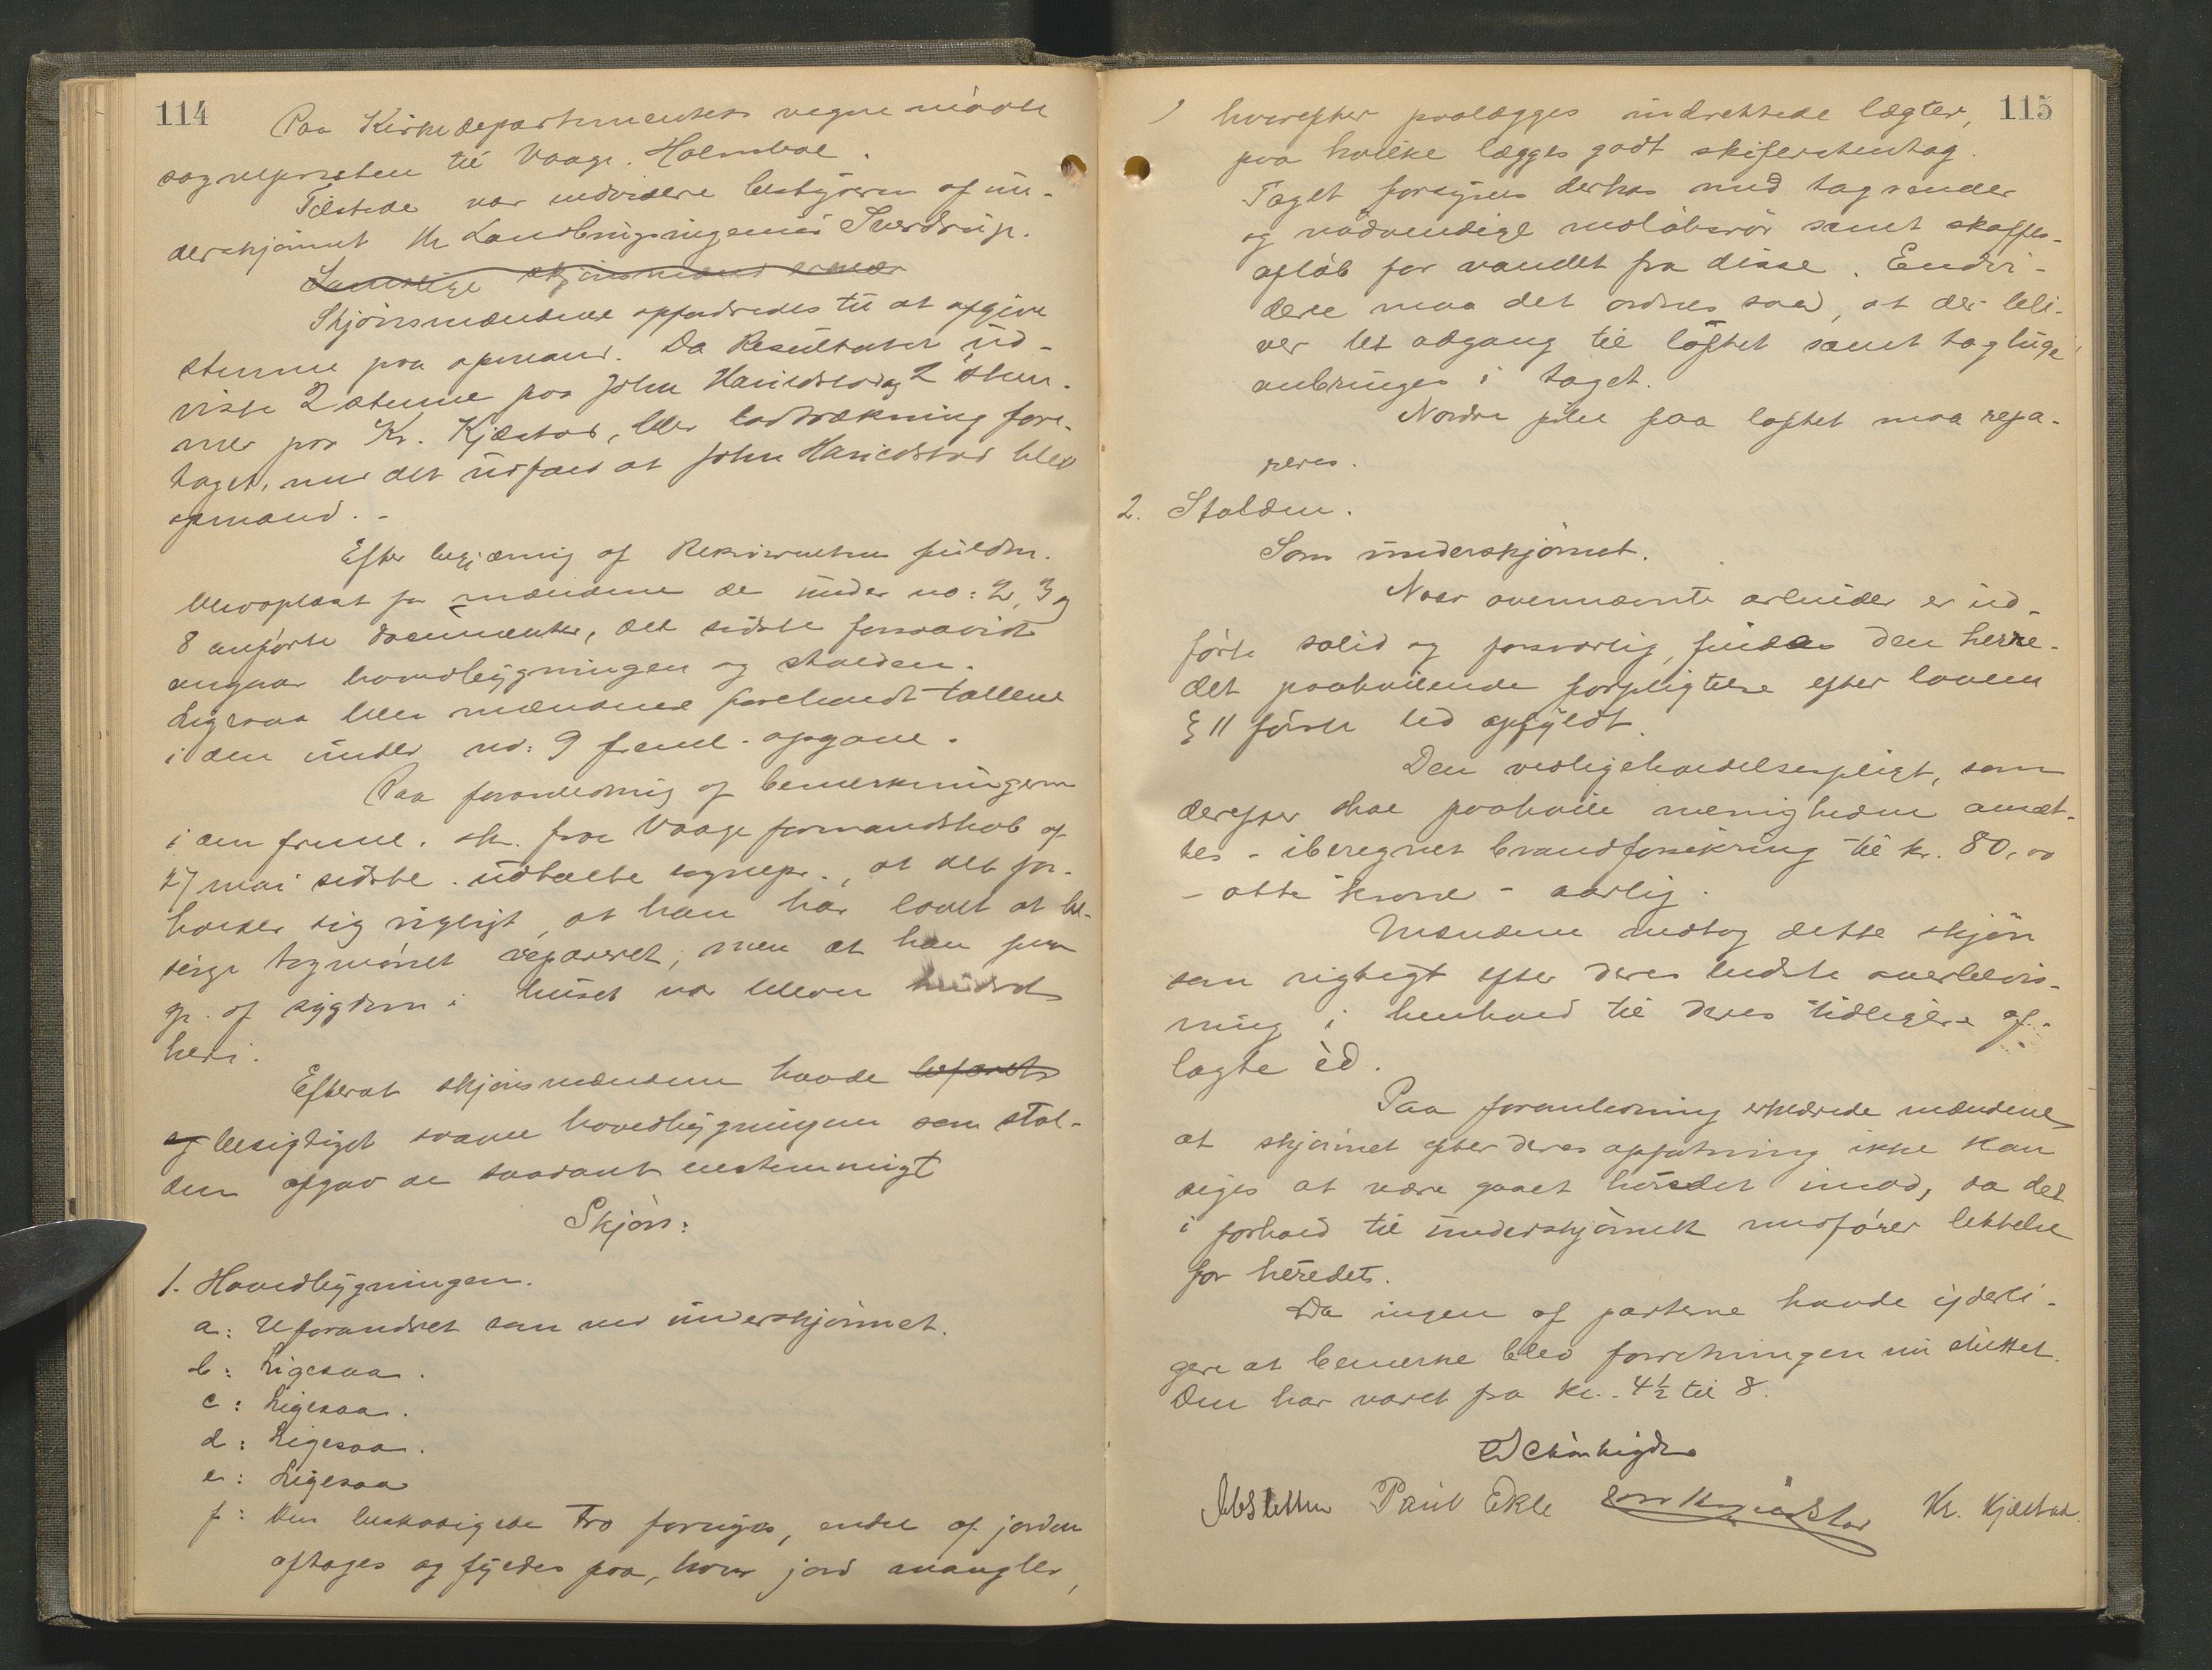 114
Paa Kirkedepartmentets vegne mödte
sognepresten til Vaage. Holmboe.
Tilstede var endvidere bestyreren af un-
derskjönnet Hr Landbrugsingeniör Sverdrup.
Samtlige skjönsmænd
Skjönsmændene opfordredes til at afgive
stemme paa opmand. Da Resultatet ud-
viste 2 stemme paa John Harildstad og 2 stem-
mer paa Kr. Kjæstad, blev lodtrækning fore-
taget, med det udfald at John Harildstad blev
opmand. -
Efter begjæring af Rekvirentens fuldm.
blev oplæst for mændene de under no: 2, 3 og
8 anförte documenter, det sidste forsaavidt
angaar hovedbygningen og stalden.
Ligesaa blev mændene forehandt tallene
i den under no: 9 freml. opgave.
Paa foranledning af bemerkningerne
i den freml. sk. fra Vaage formandskab af
27 mai sidste udtalte sognepr., at det for-
holder sig rigtigt, at han har lovet at be-
sörge tagmönet repareret, men at han paa
gr. af sygdom i huset var bleven hindret
heri.
Efterat skjönsmændene havde befaret
og besigtiget saavel hovedbygningen som stal-
den afgav de saadant enstemmigt
Skjön:
1. Hovedbygningen.
a: Uforandret som ved underskjönnet.
b: Ligesaa.
c: Ligesaa.
d: Ligesaa.
e: Ligesaa
f: Den beskadigede tro fornyes, endel af jorden
aftages og fyldes paa, hvor jord mangler,
115
hvorefter paalægges indrettede lægter,
paa hvilke lægges godt skiferstentag.
Taget forsynes derhos med tagrender
og nödvendige nedlöbsrör samt skaffes
aflöb for vandet fra disse. Endvi-
dere maa det ordnes saa, at der bli-
ver let adgang til loftet samt tagluge
anbringes i taget.
Nordre pibe paa loftet maa repa-
reres.
2. Stalden.
Som underskjönnet.
Naar ovennævnte arbeider er ud-
förte solid og forsvarlig, findes den herre-
det paahvilende forpligtelse efter lovens
§ 11 förste led opfyldt.
Den vedligeholdelsespligt, som
derefter skal paahvile menigheden ansæt-
tes - iberegnet brandforsikring til kr. 80,00
- otti kroner - aarlig.
Mændene vedtog dette skjön
som rigtigt efter deres bedste overbevis-
ning i henhold til deres tidligere af-
lagte ed.
Paa foranledning erklærede mændene
at skjönnet efter deres opfatning ikke kan
siges at være gaaet herredet imod, da det
i forhold til underskjönnet medförer lettelse
for herredet.
Da ingen af parterne havde yderli-
gere at bemerke blev forretningen nu sluttet.
Den har varet fra kl. 4½ til 8.
Paul Ekle
Kr. Kjæstad.